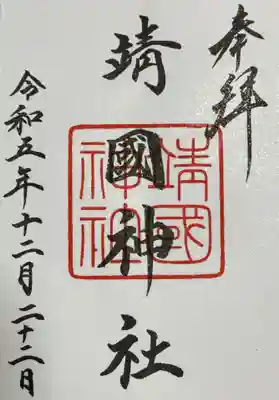 奉拝
靖國神社
靖國
神社
令和五年十二月二十二日